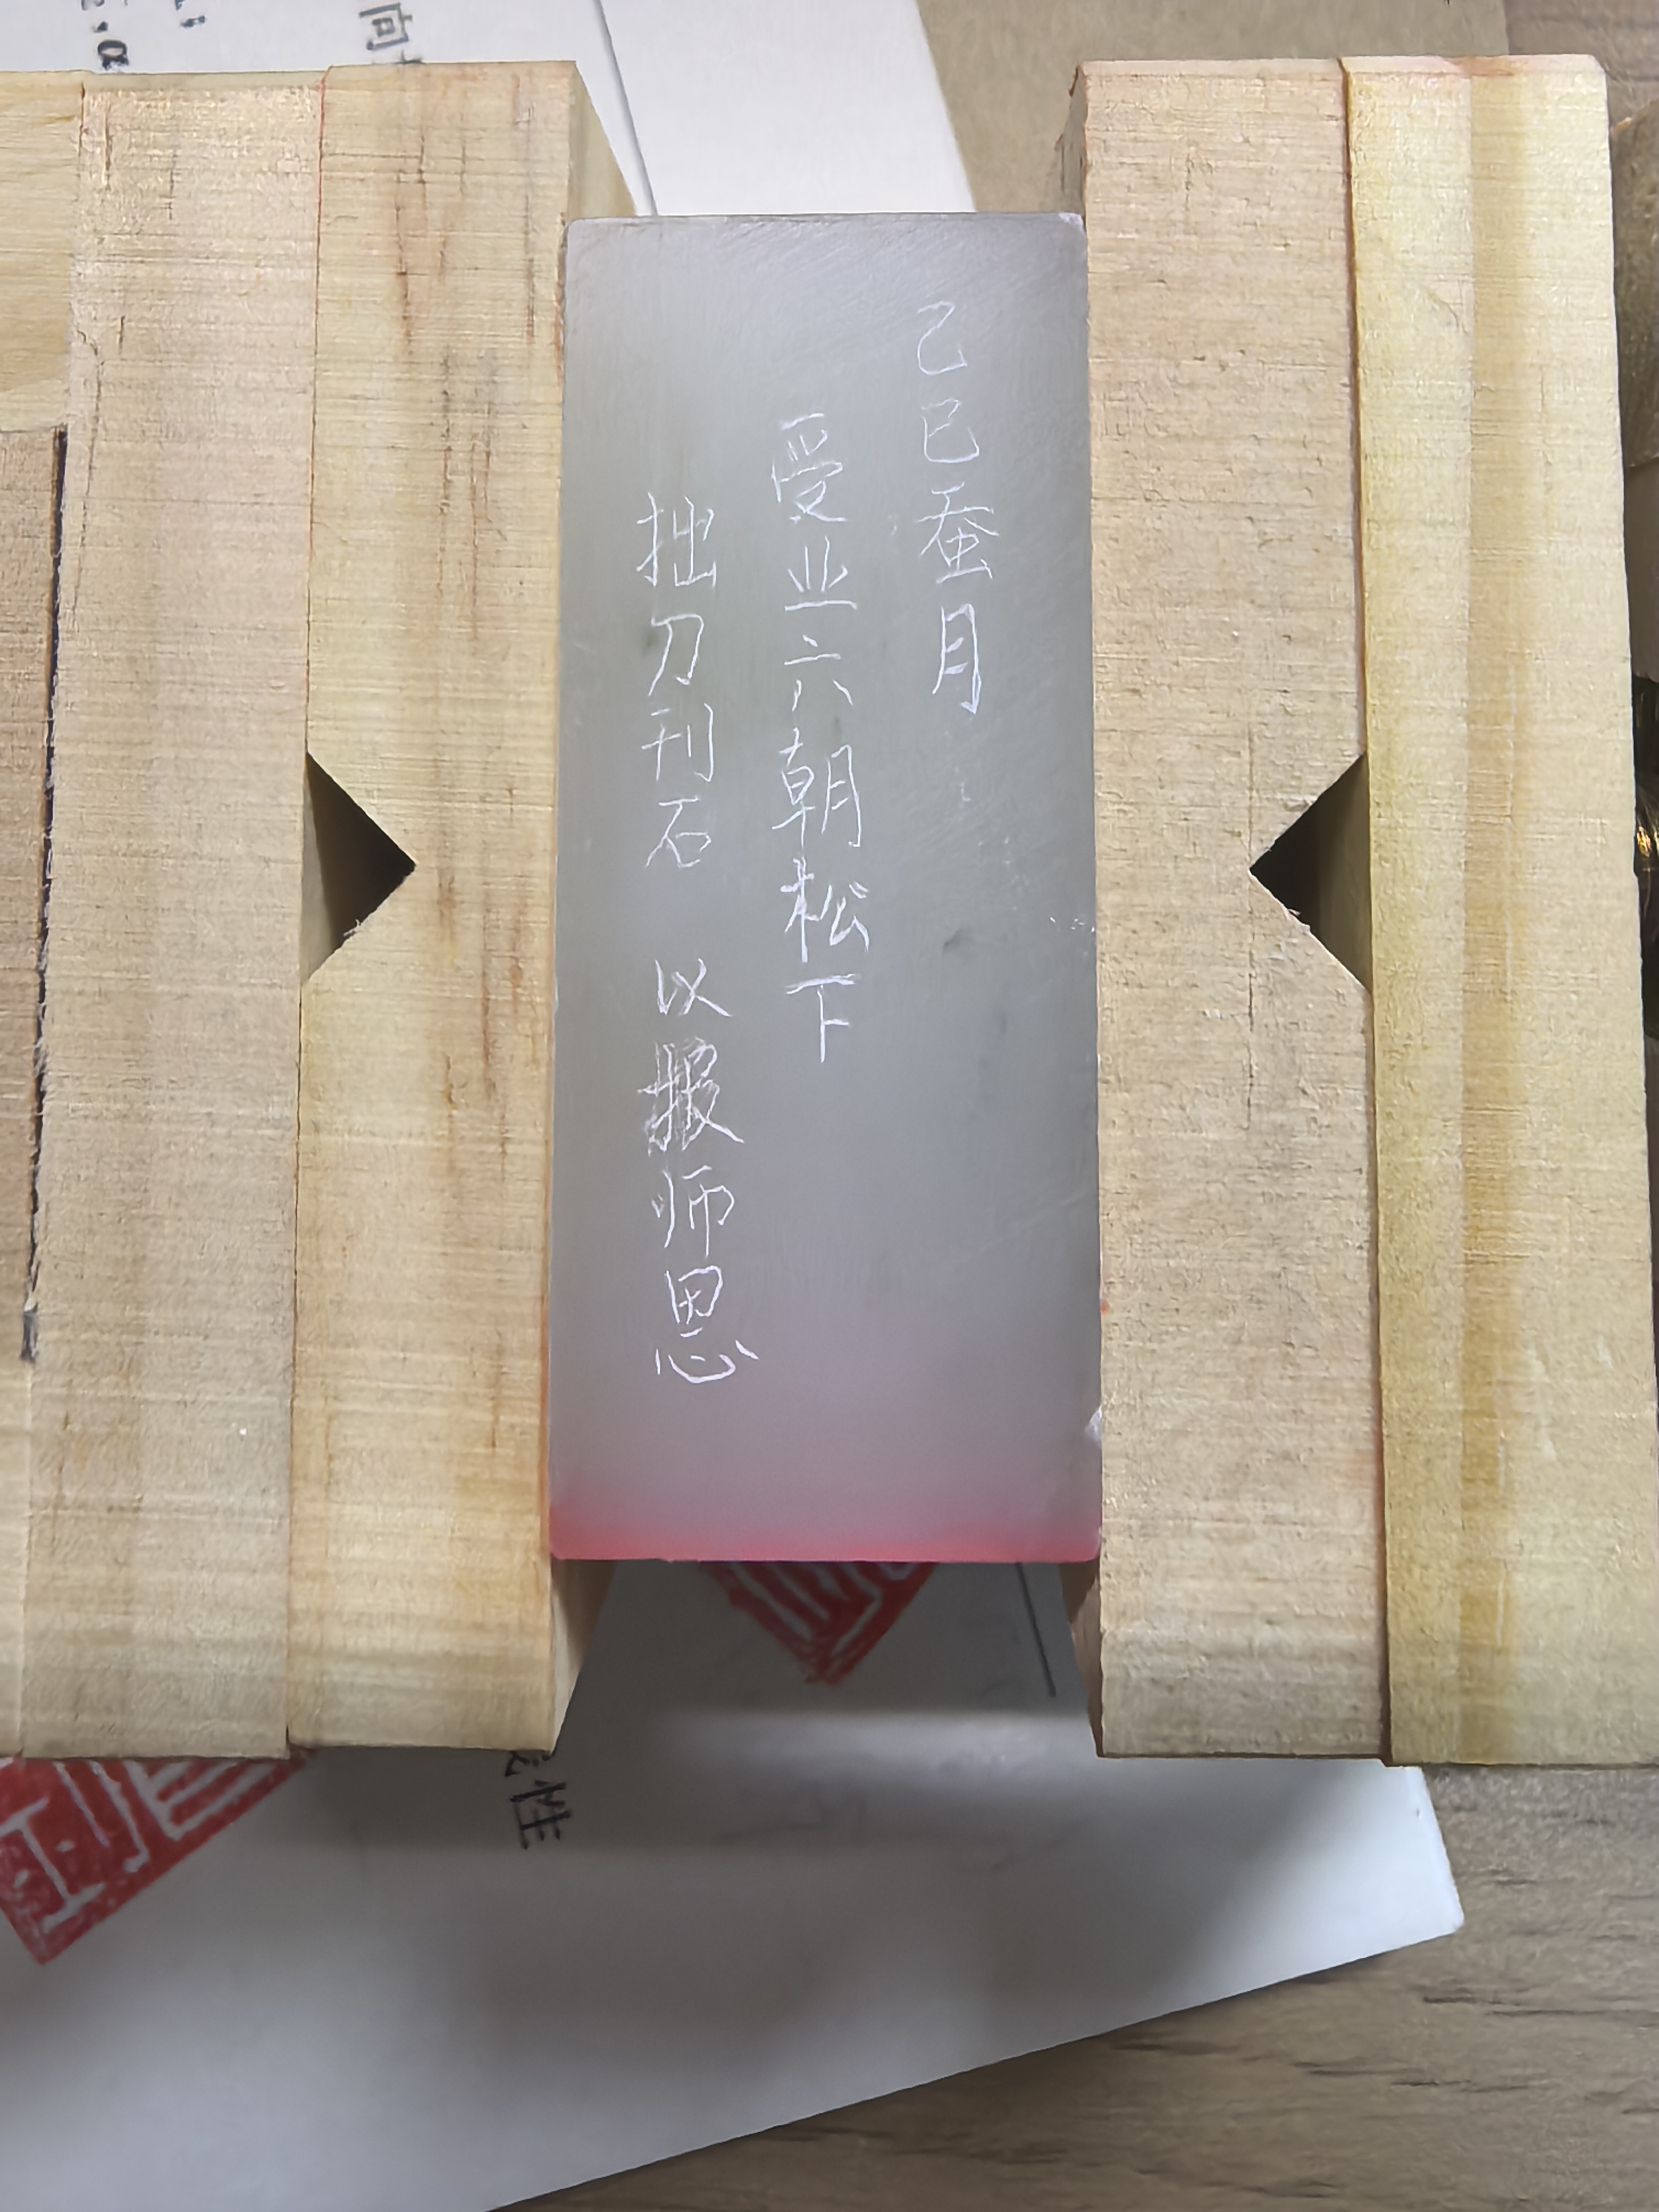 乙巳蚕月
受业六朝松下
拙刀刊石 以报师恩
向
性